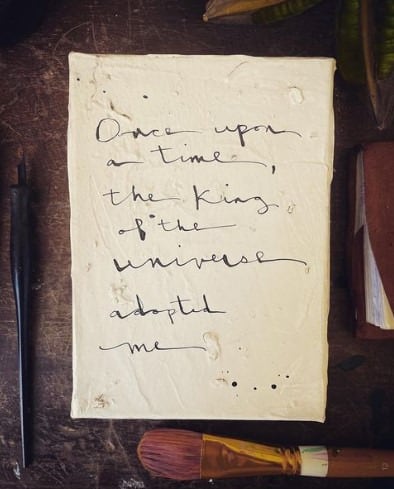 Once upon
a time,
the King
of the
universe
adopted
me
....